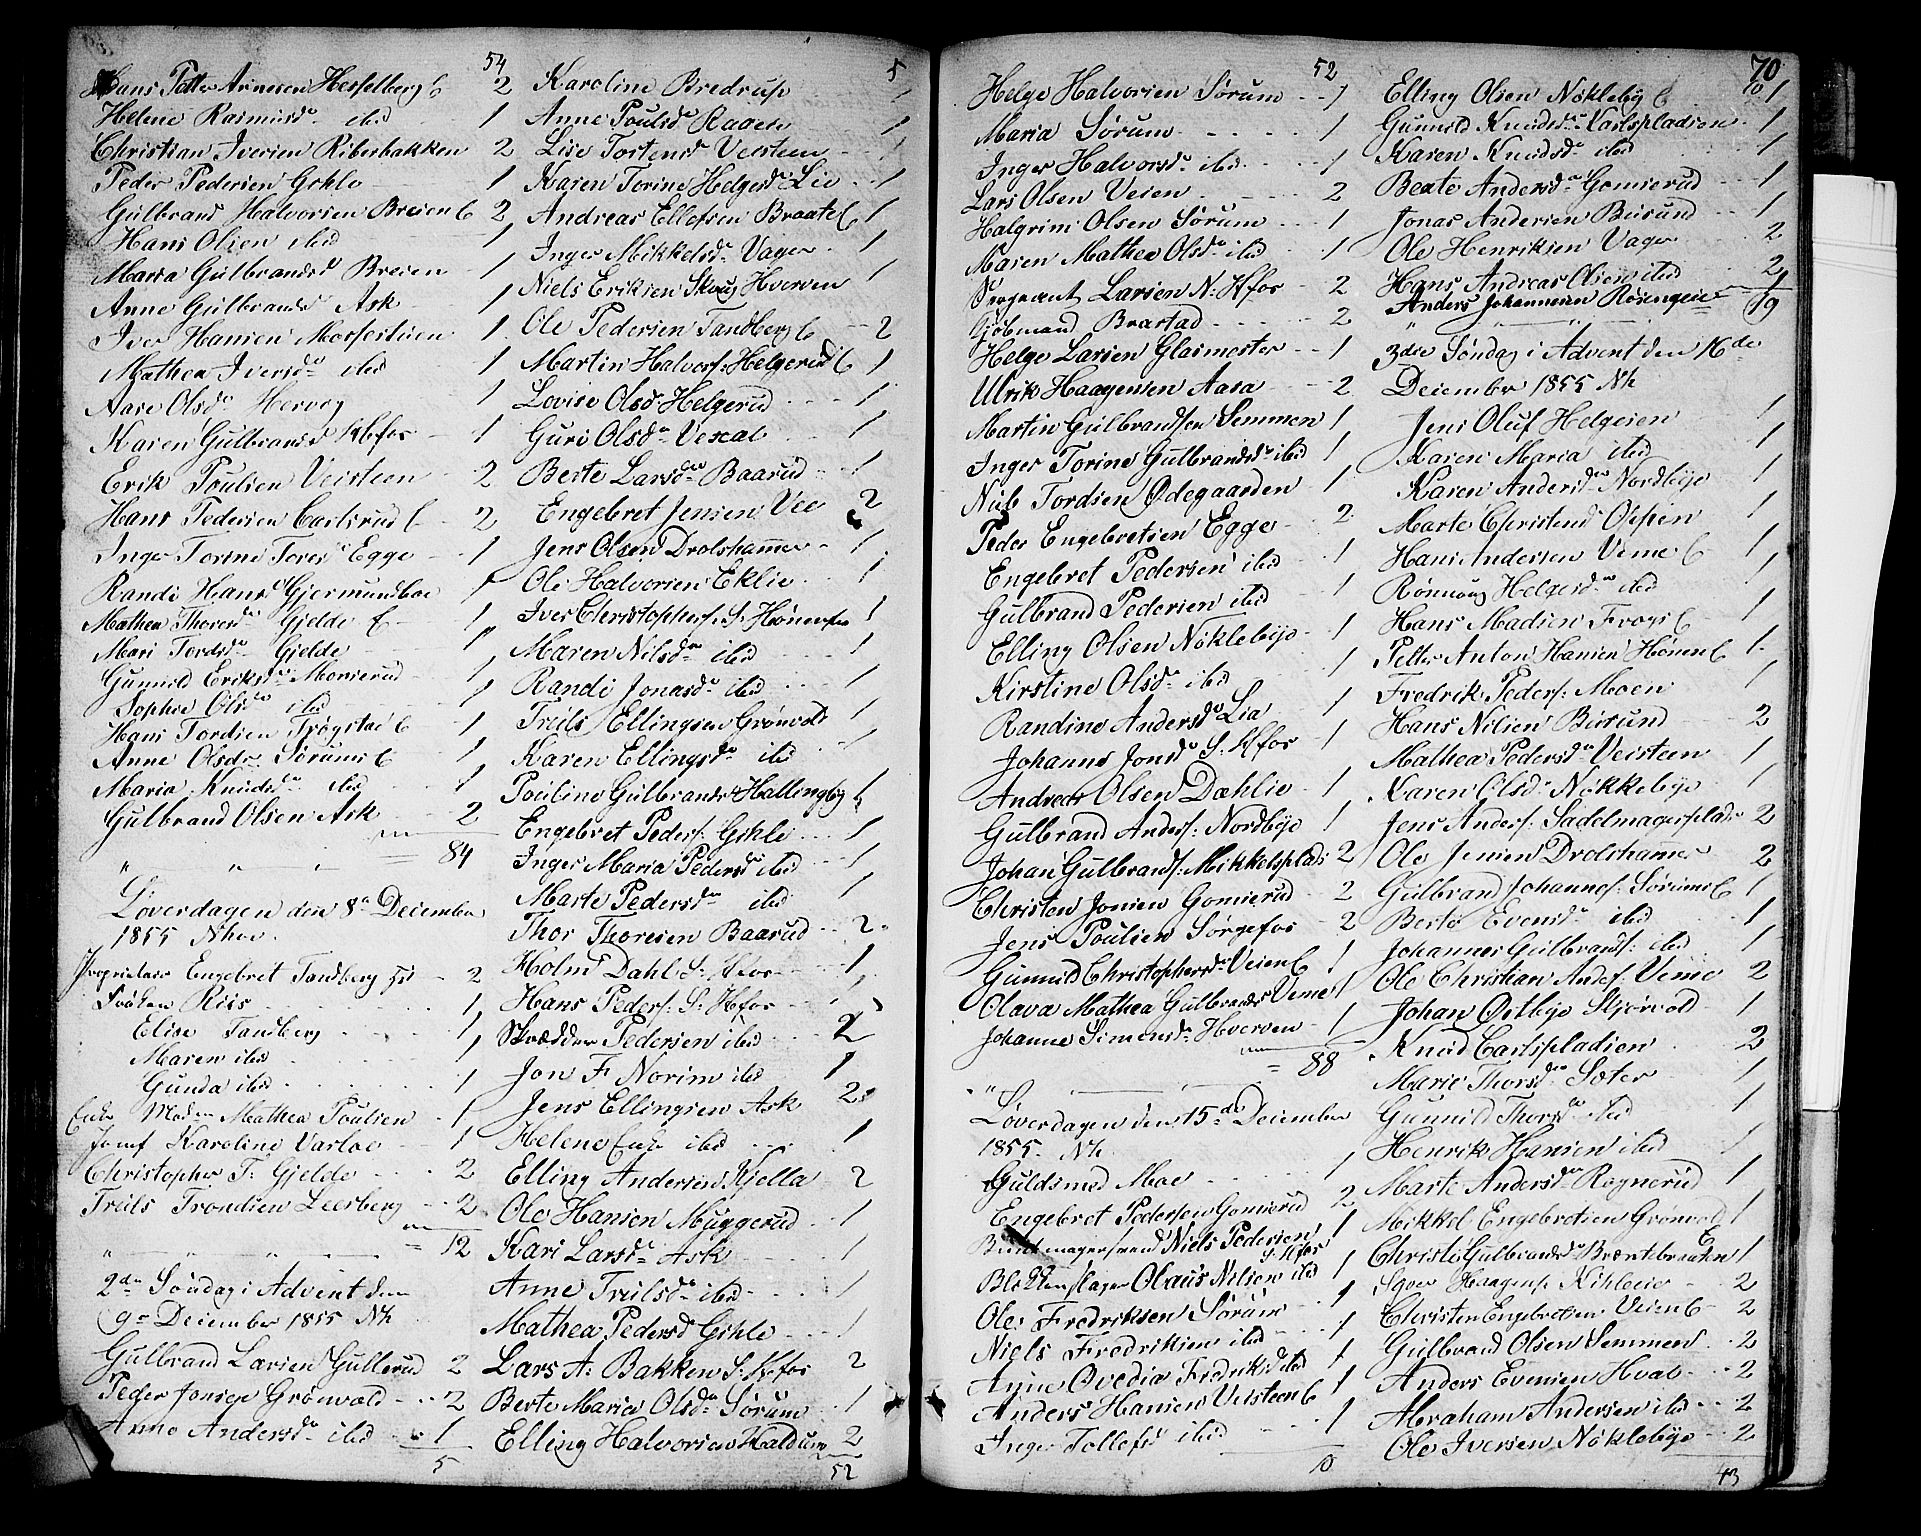 54
Hans Petter Arnesen Hesselberg E 2
Helene Rasmusdr ibid 1
Christian Iversen Riberbakken 2
Peder Pedersen Gihle 1
Gulbrand Halvorsen Breien E 2
Hans Olsen ibid 1
Maria Gulbrandsd Breien 1
Anne Gulbrands Ask 1
Iver Hansen 1
Mathea Iversdr ibid 1
Aase Olsdr 1
Karen Gulbrandsd Hfos 1
Erik Poulsen Veisteen 2
Hans Pedersen Carlsrud E 2
Inger Torine Toresd Egge 1
Randi Hansd Gjermundboe 1
Mathea Thoresdr Gjelde E 1
Mari Tordsdr Gjelde 1
Gunnild Eriksdr Moserud 1
Sophie Olsdr ibid 1
Hans Tordsen Trøgstad E 1
Anne Olsdr Sørum E 1
Maria Knudsdr ibid 1
Gulbrand Olsen Ask 2
= 84
Løverdagen den 8de December
1855 Nhov.
Proprietær Engebret Tandberg 2
Frøken Riis 1
Elise Tandberg 1
Maren ibid 1
Gunda ibid 1
Enke Mad Mathea Poulsen 1
Jomf Karoline Varloe 1
Christopher T: Gjelde 2
Truls Trondsen Leerberg 2
= 12
2den Søndag i Advent den
9de December 1855 Nh
Gulbrand Larsen Gullerud 2
Peder Jonsen Grønvold 2
Anne Andersdr ibid 1
5
5
Karoline Bredrup 1
Anne Poulsdr Raaen 1
Lise Tostensdr Veisteen 1
Karen Torine Helgesdr Lie 1
Andreas Ellefsen Braate E 1
Inger Mikkelsdr Vager 1
Niels Eriksen Skoug Hverven 1
Ole Pedersen Tandberg E 2
Martin Halvors: Helgerud E 1
Lovise Olsd Helgerud 1
Guri Olsdr Vesal 1
Berte Larsdr Baarud 1
Engebret Jensen Vee 2
Jens Olsen Drolshammer 1
Ole Halvorsen Eklie 1
Iver Christophers: S: Hønefos 1
Maren Nilsdr ibid 1
Randi Jonasdr ibid 1
Truls Ellingsen Grønvold 1
Karen Ellingsdr ibid 1
Pouline Gulbrandsd Hallingby 1
Engebret Peders: Gihle 1
Inger Maria Pedersd ibid 1
Marte Pedersdr ibid 1
Thor Thoresen Baarud 2
Holm Dahl S: Hfos 1
Hans Peders: S: Hfos 1
Skrædder Pedersen ibid 2
Jon F Norim ibid 1
Jens Ellingsen Ask 2
Helene Enke ibid 1
Elling Andersen Kjella 2
Ole Hansen Muggerud 1
Kari Larsdr Ask 1
Anne Trulsdr ibid 1
Mathea Pedersd Gihle 1
Lars A: Bakken S: Hfos 2
Berte Maria Olsdr Sørum 1
Elling Halvorsen Haldum 2
52
52
Helge Halvorsen Sørum 1
Maria Sørum 1
Inger Halvorsdr ibid 1
Lars Olsen Veien 2
Halgrim Olsen Sørum 1
Maren Mathea Olsdr ibid 1
Sergeant Larsen N: Hfos 2
Kjøbmand Brastad 2
Helge Larsen Glasmester 1
Ulrik Haagensen Aasa 2
Martin Gulbrandsen Semmen 1
Inger Torine Gulbrandsdr ibid 1
Niels Tordsen Ødegaarden 1
Peder Engebretsen Egge 2
Engebret Pedersen ibid 1
Gulbrand Pedersen ibid 1
Elling Olsen Nøklebye 1
Kirstine Olsdr ibid 1
Randine Andersdr Lia 1
Johanne Jonsdr S: Hfos 1
Andreas Olsen Dæhlie 1
Gulbrand Anders: Nordbye 1
Johan Gulbrands: Mikkelsplads 2
Christen Jonsen Gomserud 2
Jens Poulsen Sørgefos 2
Gunnild Christophersdr Veien E 1
Olava Mathea Gulbrandsd Veme 1
Johanne Simensdr Hverven 1
= 88
Løverdagen den 15de December
1855. Nh.
Guldsmed Moe 1
Engebret Pedersen Gomserud 2
Buntmagersvend Niels Pedersen S: Hfos 1
Blikkenslager Olaus Nilsen ibid 1
Ole Fredriksen Sørum 1
Niels Fredriksen ibid 1
Anne Ovedia Fredriksd ibid 1
Anders Hansen Veisteen E 1
Inger Tollefsd ibid 1
10
70
10
Elling Olsen Nøkleby E 1
Gunnild Knudsdr Karlspladsen 1
Karen Knudsdr ibid 1
Beate Andersdr Gomserud 1
Jonas Andersen Busund 1
Ole Henriksen Vager 2
Hans Andreas Olsen ibid 2
Anders Johannesen Rosengen 1
19
3die Søndag i Advent den 16de
December 1855 Nh
Jens Oluf Helgesen 1
Karen Maria ibid 1
Karen Andersdr Nordbye 1
Marte Christensd Oppen 1
Hans Andersen Veme E 1
Rønnoug Helgesdr ibid 1
Hans Madsen Frogs E 1
Petter Anton Hansen Hønen E 1
Fredrik Peders: Moen 1
Hans Nilsen Busund 2
Mathea Pedersdr Veisteen 1
Karen Olsdr Nøkkeleye 1
Jens Anders: Sadelmagerplads 2
Ole Jensen Drolshamer 2
Gulbrand Johannes: Sørum E 1
Berte Evensdr ibid 1
Johannes Gulbrands: ibid 1
Ole Christian Anders: Veme 2
Johan Østbye Skjørvold 1
Knud Carlspladsen 2
Marie Thorsdr Sæter 1
Gunnild Thorsdr ibid 1
Henrik Hansen ibid 1
Marte Andersdr Rognerud 1
Mikkel Engebretsen Grønvold 1
Christi Gulbrandsdr Bræntebraaten E 1
Iver Haagens: Kihleie 2
Christen Engebretsen Veien E 2
Gulbrand Olsen Semmen 2
Anders Evensen Hval 2
Abraham Andersen ibid 2
Ole Iversen Nøklebye 2
43